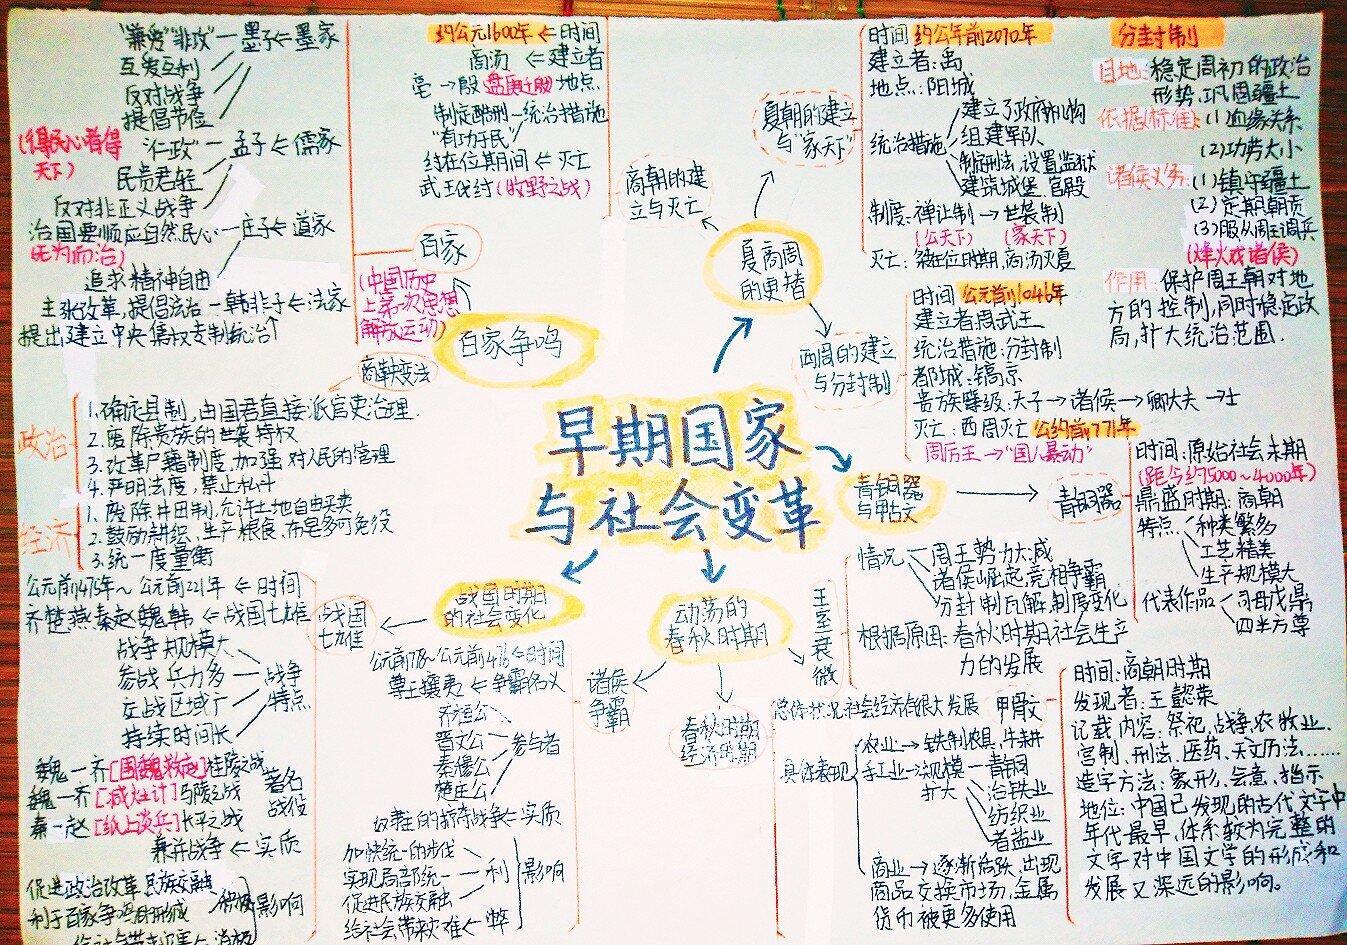 早期国家
与社会变革
夏商周
的更替
夏朝的建立
与"家天下"
时间 约公年前2070年
建立者:禹
地点:阳城
统治措施
建立了政府机构
组建军队
制定刑法,设置监狱
建筑城堡、宫殿
制度:禅让制→世袭制
(公天下) (家天下)
灭亡:桀在位时期,商汤灭夏
商朝的建
立与灭亡
约公元1600年←时间
商汤←建立者
亳→殷 盘庚迁殷 地点
制定酷刑—统治措施
"有功于民"
纣在位期间←灭亡
武王伐纣(牧野之战)
西周的建立
与分封制
时间 公元前1046年
建立者周武王
统治措施:分封制
都城:镐京
贵族等级:天子→诸侯→卿大夫→士
灭亡:西周灭亡 公约前771年
周厉王→"国人暴动"
分封制
目地:稳定周初的政治
形势,巩周疆土
依据(标准):(1)血缘关系
(2)功劳大小
诸侯义务:(1)镇守疆土
(2)定期朝贡
(3)服从周王调兵
(烽火戏诸侯)
作用:保护周王朝对地
方的控制,同时稳定政
局,扩大统治范围.
青铜器
与甲古文
青铜器
时间:原始社会末期
(距今约5000~4000年)
鼎盛时期:商朝
特点
种类繁多
工艺精美
生产规模大
代表作品
司母戊鼎
四羊方尊
甲骨文
时间:商朝时期
发现者:王懿荣
记载内容:祭祀,战争,农牧业、
官制、刑法、医药、天文历法……
造字方法:象形、会意、指示
地位:中国已发现的古代文字中
年代最早,体系较为完整的
文字对中国文学的形成和
发展又深远的影响。
动荡的
春秋时期
王室衰微
情况
周王势力大减
诸侯崛起,竞相争霸
分封制瓦解,制度变化
根据原因:春秋时期社会生产
力的发展
春秋时期
经济时期
总体状况:社会经济有很大发展
具体表现
农业→铁制农具,牛耕
手工业→规模
扩大
青铜
冶铁业
纺织业
煮盐业
商业→逐渐活跃,出现
商品交换市场,金属
货币被更多使用
诸侯
争霸
公元前778~公元前476←时间
尊王攘夷←争霸名义
齐桓公
晋文公
秦穆公
楚庄公
参与者
奴隶主的掠夺战争←实质
加快统一的步伐
实现局部统一
促进民族交融
利
给社会带来灾难←弊
影响
战国时期
的社会变化
战国
七雄
公元前475年~公元前221年←时间
齐楚燕秦赵魏韩←战国七雄
战争规模大
参战兵力多
交战区域广
持续时间长
战争
特点
魏—齐[围魏救赵]桂陵之战
魏—齐[减灶计]马陵之战
秦—赵[纸上谈兵]长平之战
著名
战役
兼并战争←实质
促进政治改革,民族交融
利于百家争鸣局面形成
积极
影响
消极
百家争鸣
百家
(中国历史
上第一次思想
解放运动)
"兼爱""非攻"—墨子←墨家
互爱互利
反对战争
提倡节俭
(得民心者得
天下)
"仁政"—孟子←儒家
民贵君轻
反对非正义战争
治国要顺应自然民心—庄子←道家
无为而治)
追求精神自由
主张改革,提倡法治—韩非子←法家
提出了建立中央集权专制统治
商鞅变法
政治
1.确定县制,由国君直接派官吏治理.
2.废除贵族的世袭特权
3.改革户籍制度,加强对人民的管理
4.严明法度,禁止私斗
经济
1.废除井田制,允许土地自由买卖
2.鼓励耕织,生产粮食、布帛多可免役
3.统一度量衡